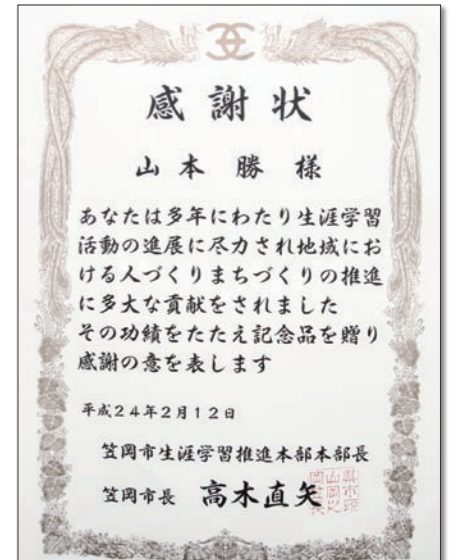 感謝状
山本 勝 様
あなたは多年にわたり生涯学習
活動の進展に尽力され地域にお
ける人づくりまちづくりの推進
に多大な貢献をされました
その功績をたたえ記念品を贈り
感謝の意を表します
平成24年2月12日
笠岡市生涯学習推進本部本部長
笠岡市長 高木直矢